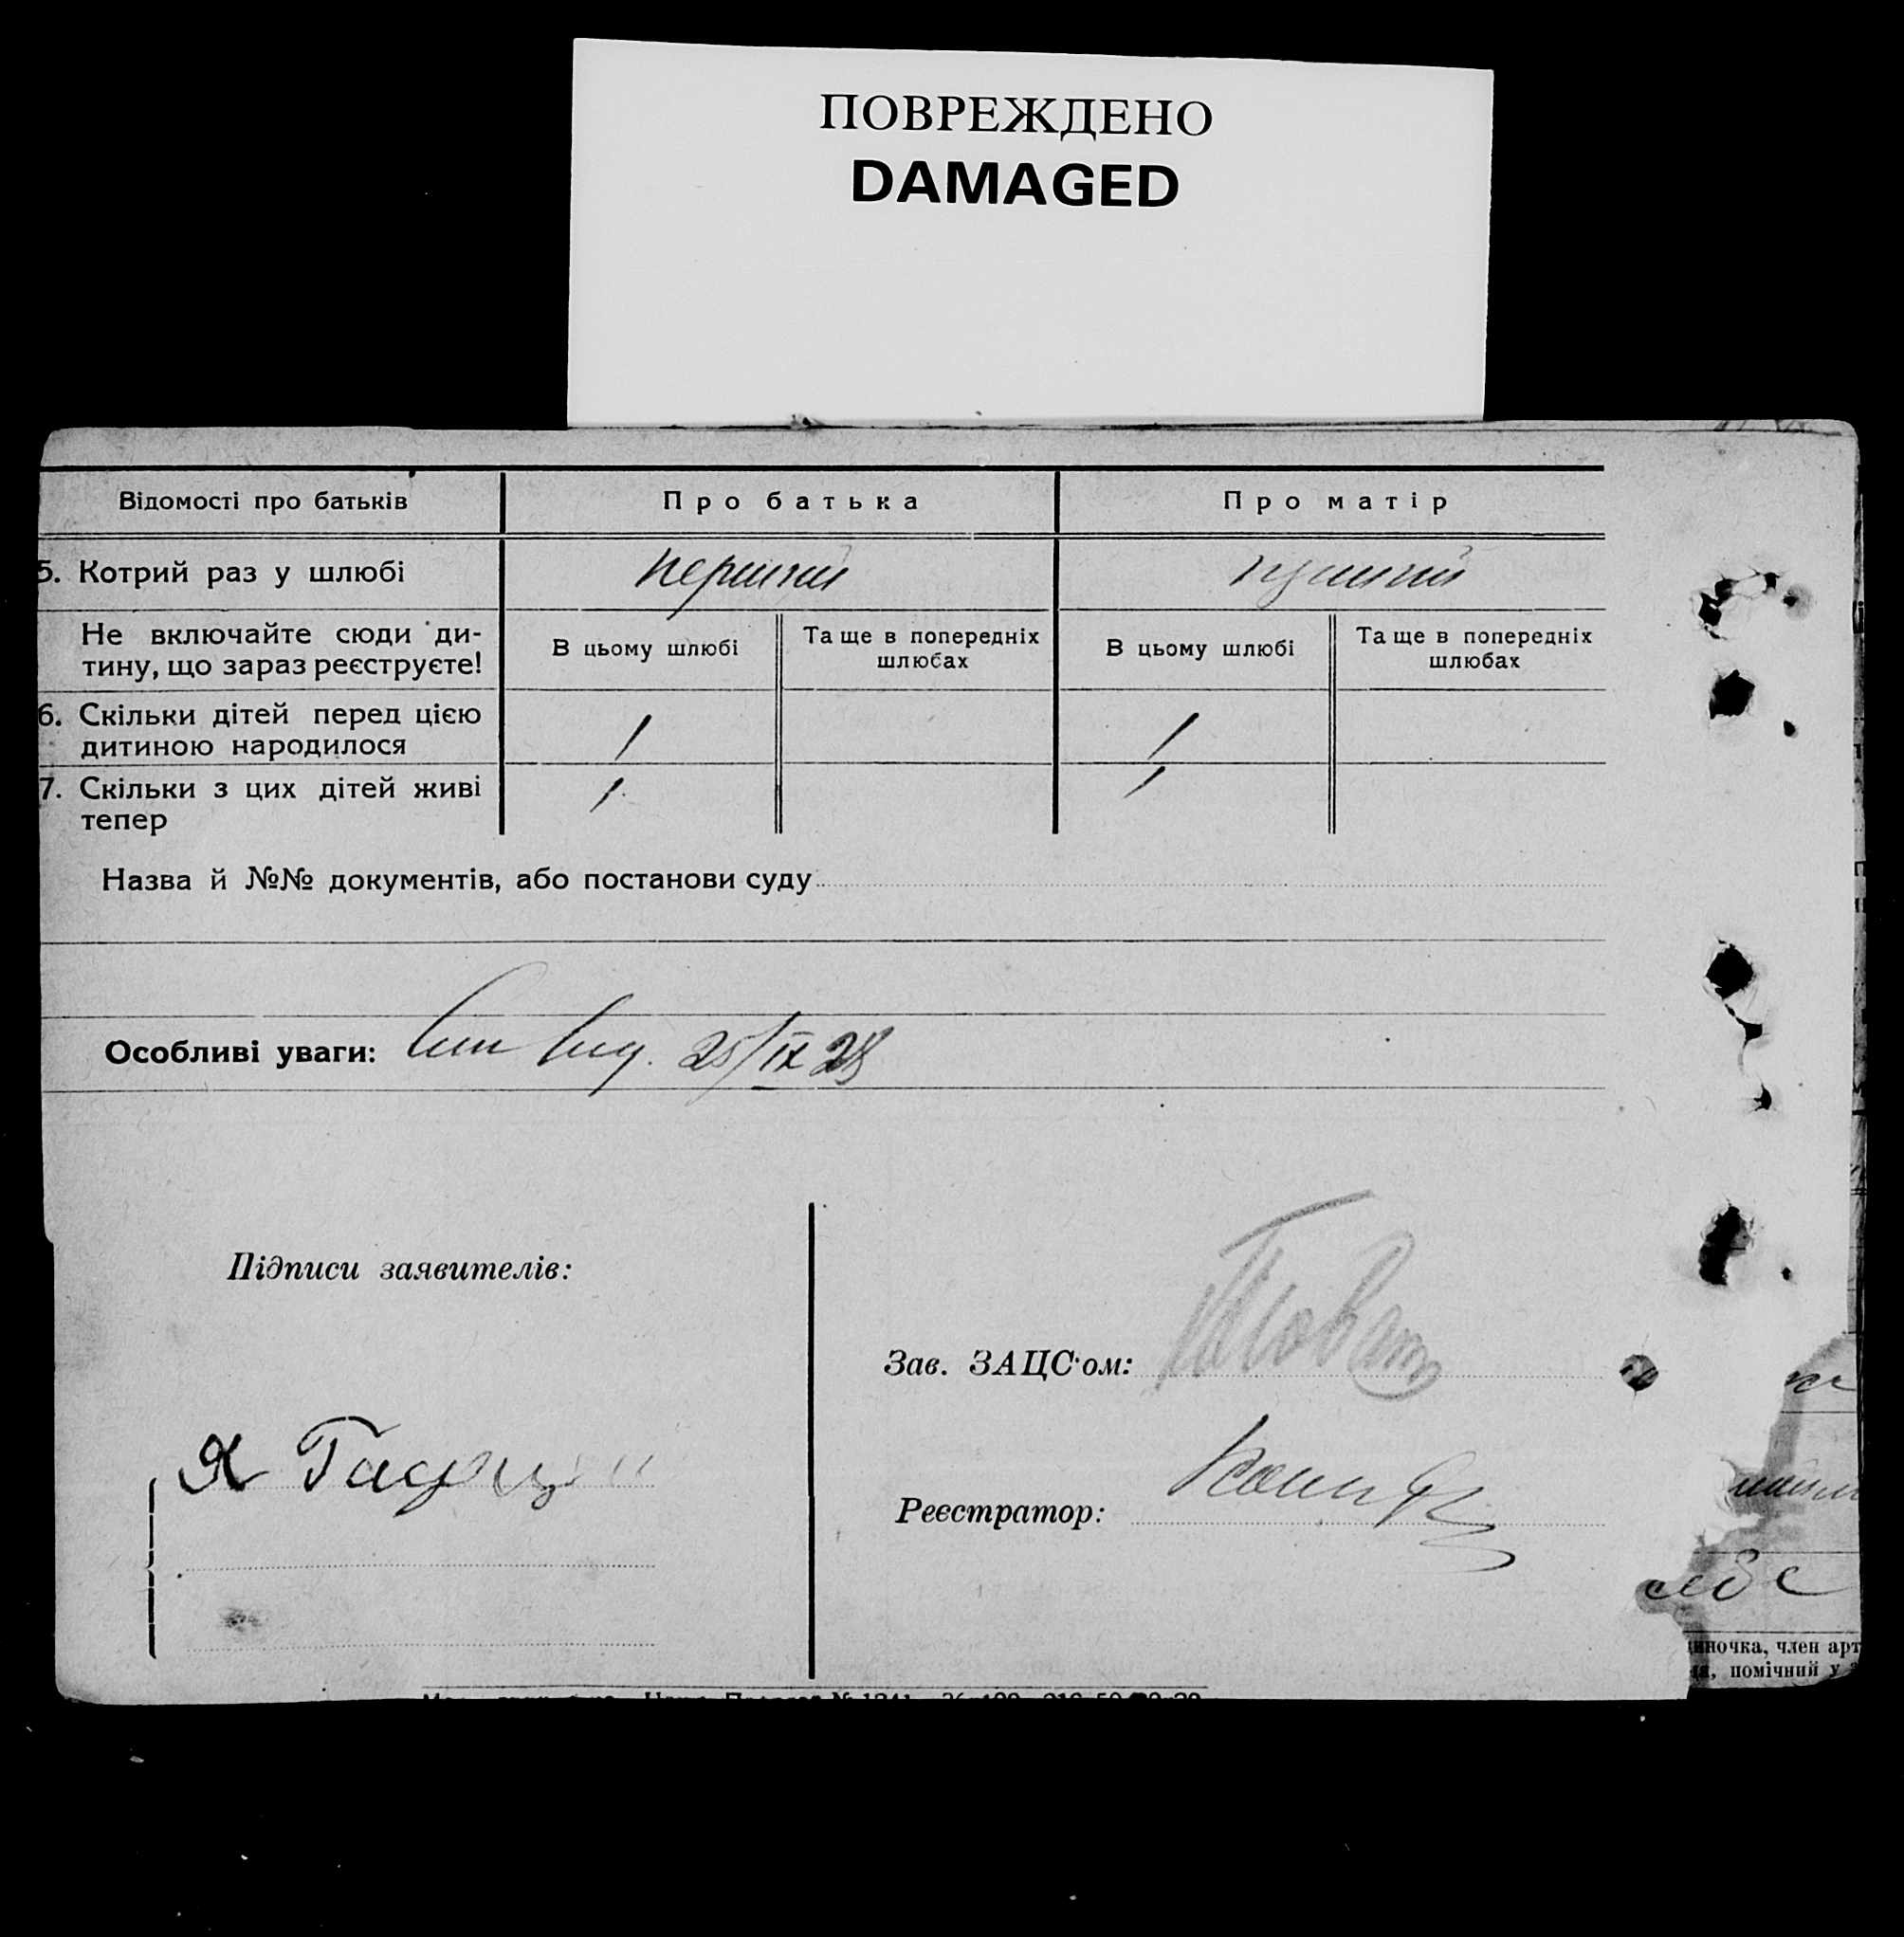 ПОВРЕЖДЕНО
DAMAGED
Відомості про батьків
Про батька
Про матір
5. Котрий раз у шлюбі
перший
перший
Не включайте сюди ди-
тину, що зараз реєструєте!
В цьому шлюбі
Та ще в попередніх
шлюбах
В цьому шлюбі
Та ще в попередніх
шлюбах
6. Скільки дітей перед цією
дитиною народилося
1
1
7. Скільки з цих дітей живі
тепер
1
1
Назва й №№ документів, або постанови суду
Особливі уваги: 25/IX 28
Підписи заявителів:
Зав. ЗАЦС'ом:
Я
Реєстратор:
иночка, член арт
помічний у